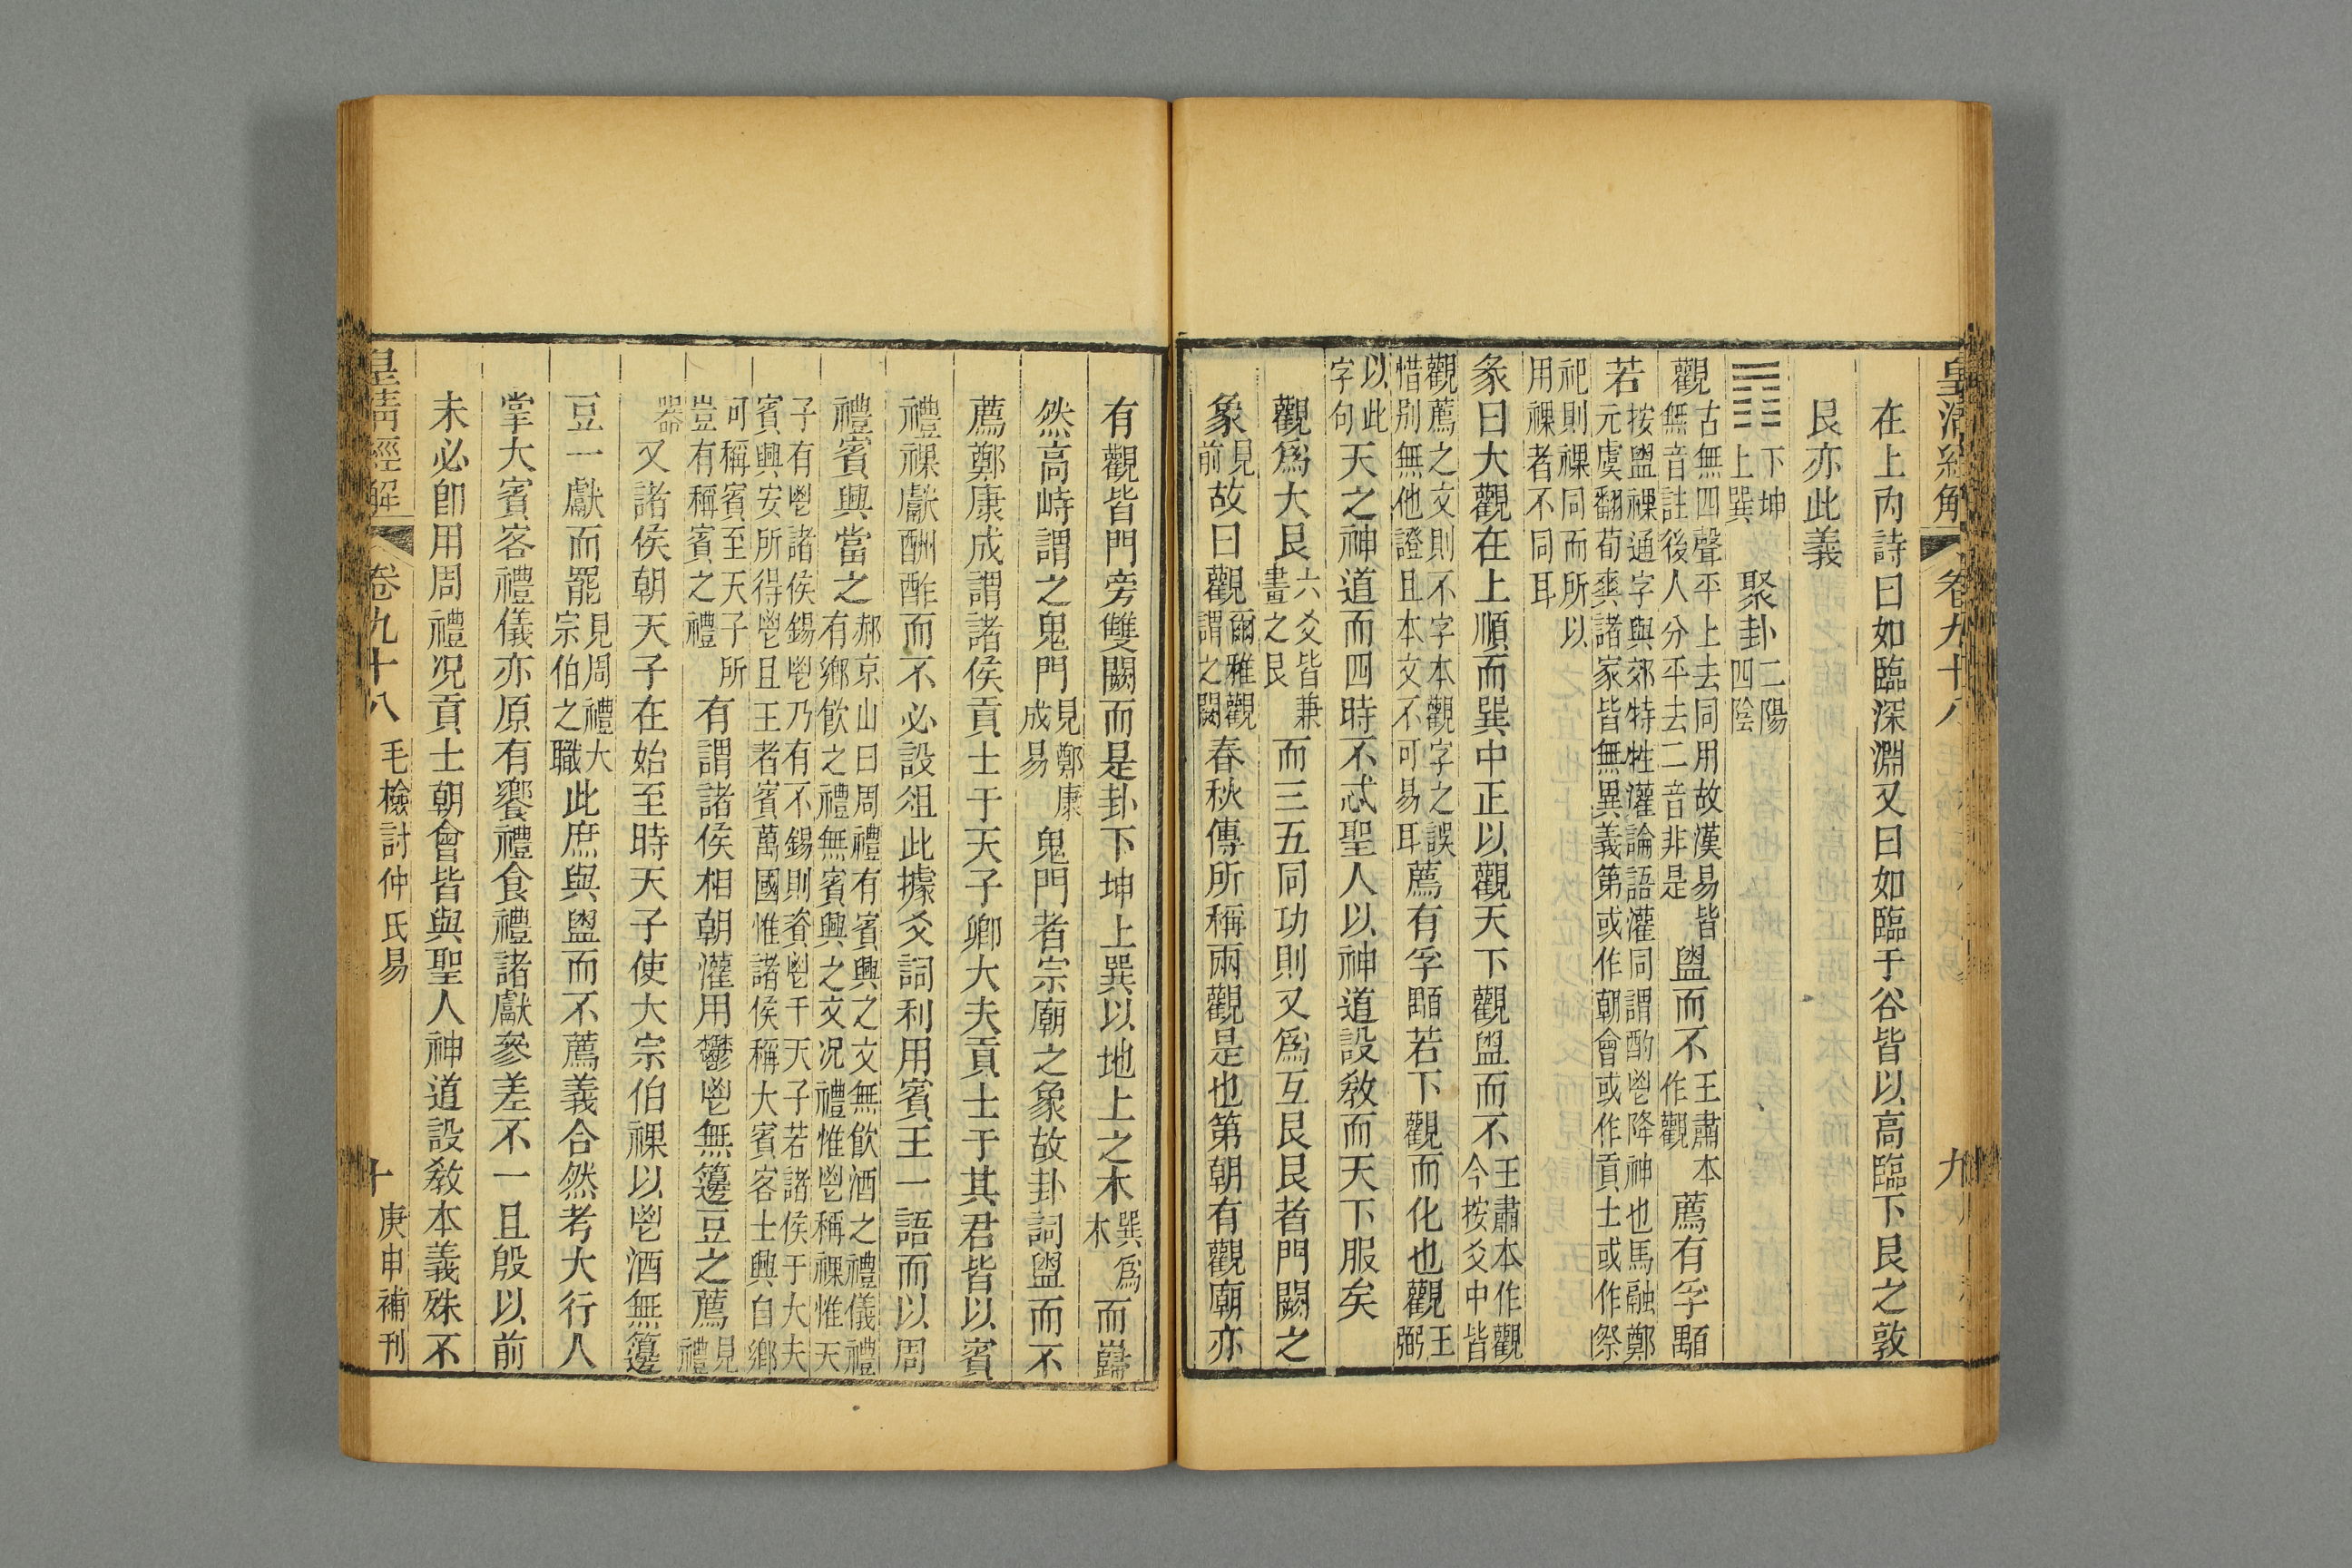 皇清經解 卷九十八 九
在上內詩曰如臨深淵又曰如臨于谷皆以高臨下艮之敦
艮亦此義
下坤上巽 聚卦二陽四陰
觀古無四聲平上去同用故漢易皆無音註後人分平去二音非是盥而不王肅本作觀薦有孚顒
若按盥祼通字與郊特牲灌論語灌同謂酌鬯降神也馬融鄭元虞翻荀爽諸家皆無異義第或作朝會或作貢士或作祭
祀則祼同而所以用祼者不同耳
彖曰大觀在上順而巽中正以觀天下觀盥而不王肅本作觀今按爻中皆
觀薦之文則不字本觀字之誤惜別無他證且本文不可易耳薦有孚顒若下觀而化也觀王弼
以此字句天之神道而四時不忒聖人以神道設敎而天下服矣
觀爲大艮六爻皆兼畫之艮而三五同功則又爲互艮艮者門闕之
象見前故曰觀爾雅觀謂之闕春秋傳所稱兩觀是也第朝有觀廟亦
有觀皆門旁雙闕而是卦下坤上巽以地上之木巽爲木而巋
然高峙謂之鬼門見鄭康成易鬼門者宗廟之象故卦詞盥而不
薦鄭康成謂諸侯貢士于天子卿大夫貢士于其君皆以賓
禮祼獻酬酢而不必設俎此據爻詞利用賓王一語而以周
禮賓興當之郝京山曰周禮有賓興之文無飮酒之禮儀禮有鄉飮之禮無賓興之文况禮惟鬯稱祼惟天
子有鬯諸侯錫鬯乃有不錫則資鬯于天子若諸侯于大夫賓興安所得鬯且王者賓萬國惟諸侯稱大賓客士興自鄉
可稱賓至天子所豈有稱賓之禮有謂諸侯相朝灌用鬱鬯無籩豆之薦見禮
器又諸侯朝天子在始至時天子使大宗伯祼以鬯酒無籩
豆一獻而罷見周禮大宗伯之職此庶與盥而不薦義合然考大行人
掌大賓客禮儀亦原有饗禮食禮諸獻參差不一且殷以前
未必卽用周禮况貢士朝會皆與聖人神道設敎本義殊不
皇清經解 卷九十八 毛檢討仲氏易 十 庚申補刊